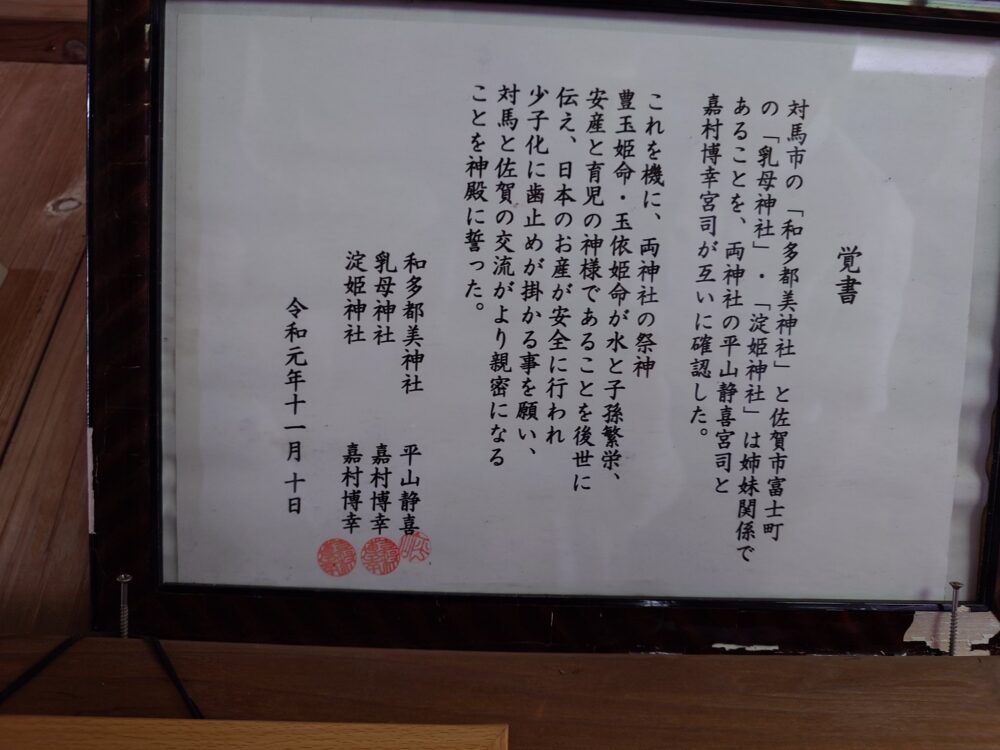 覚書
対馬市の「和多都美神社」と佐賀市富士町
の「乳母神社」・「淀姫神社」は姉妹関係で
あることを、両神社の平山静喜宮司と
嘉村博幸宮司が互いに確認した。
これを機に、両神社の祭神
豊玉姫命・玉依姫命が水と子孫繁栄、
安産と育児の神様であることを後世に
伝え、日本のお産が安全に行われ
少子化に歯止めが掛かる事を願い、
対馬と佐賀の交流がより親密になる
ことを神殿に誓った。
和多都美神社 平山静喜
乳母神社 嘉村博幸
淀姫神社 嘉村博幸
令和元年十一月十日